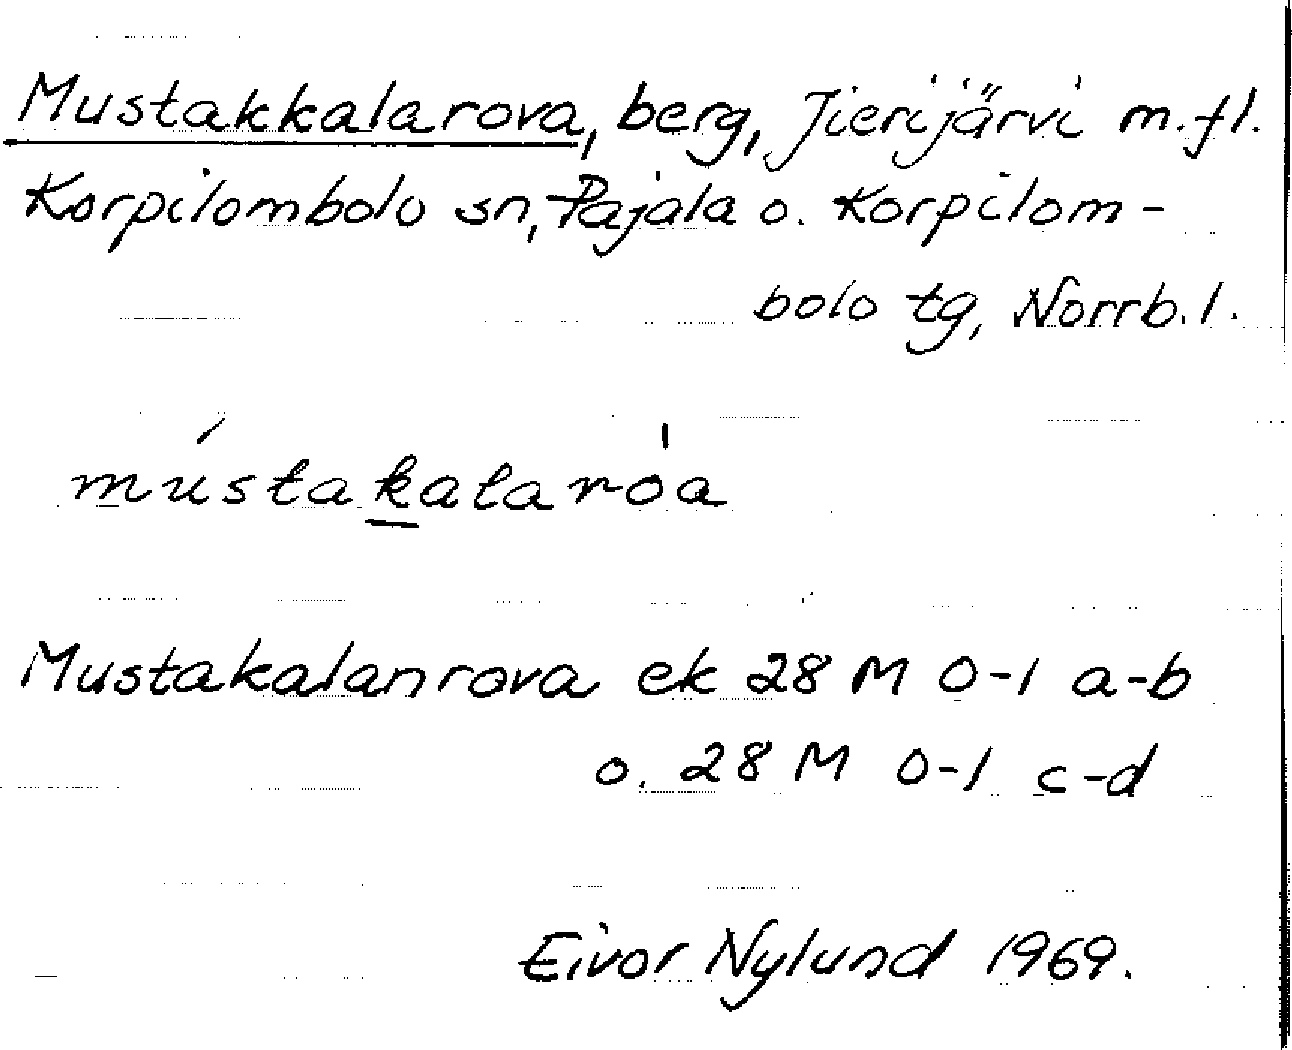 Mustakkalarova, berg, Jierijärvi m.fl.
Korpilombolo sn, Pajala o. Korpilom-
bolo tg, Norrb.l.
mústakalaròa
Mustakalanrova ek 28 M 0-1 a-b
o. 28 M 0-1 c-d
Eivor Nylund 1969.